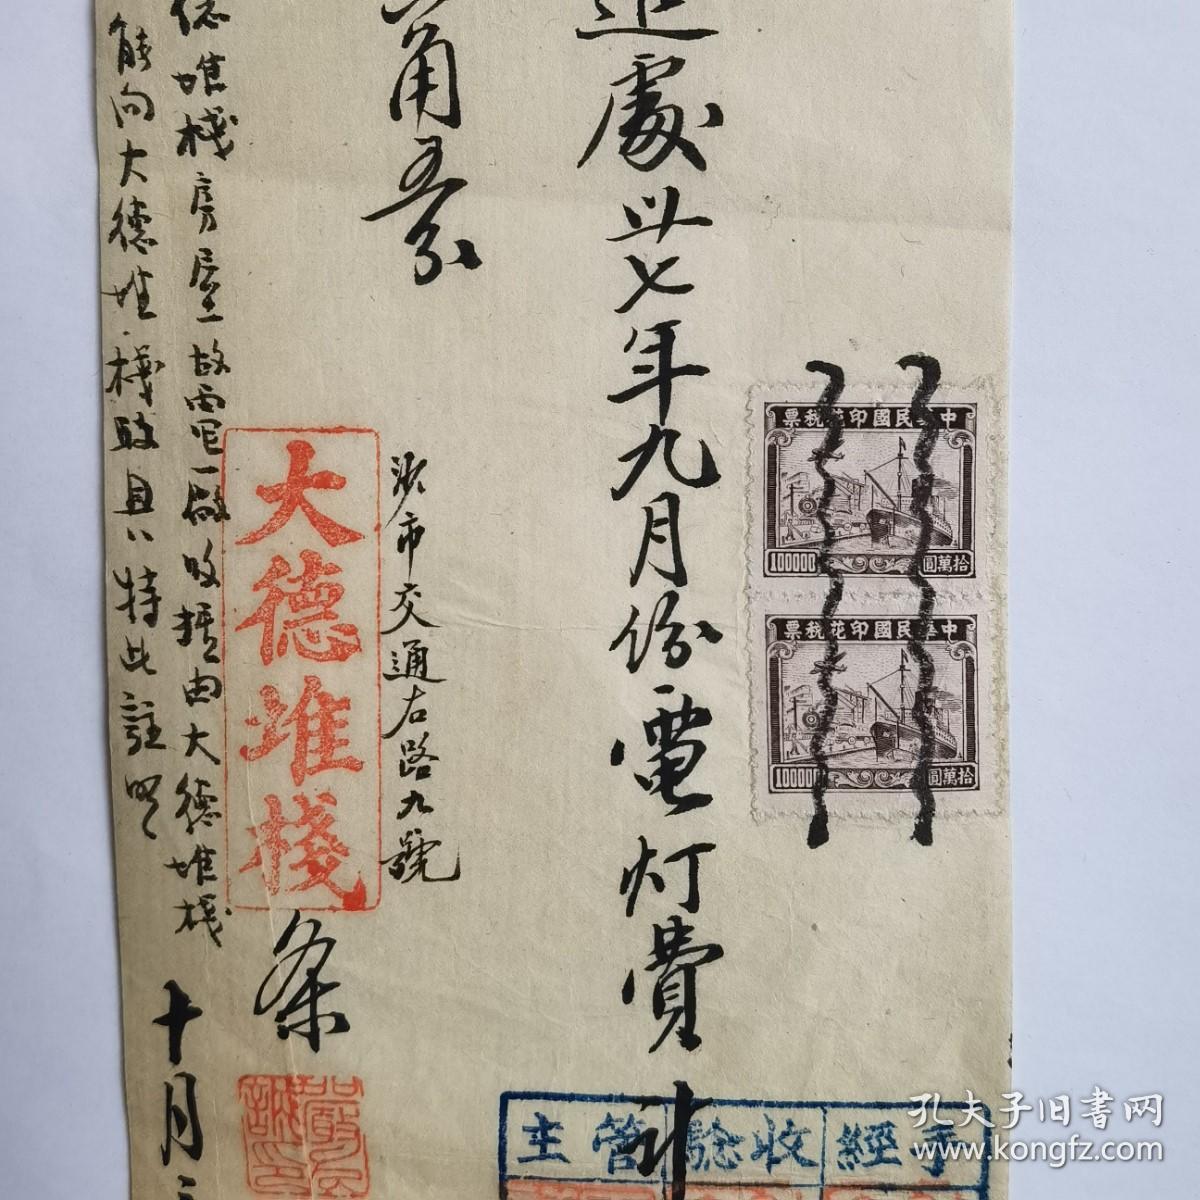 處卅七年九月份電灯費計
角五分
沙市交通右路九號
大德堆棧
条
堆栈房屋故電厂收据由大德堆栈
能向大德堆栈取具特此註明
十月
中華民國印花稅票
100000
拾萬圓
中華民國印花稅票
100000
拾萬圓
主管
驗收
經手
孔夫子旧书网
www.kongfz.com